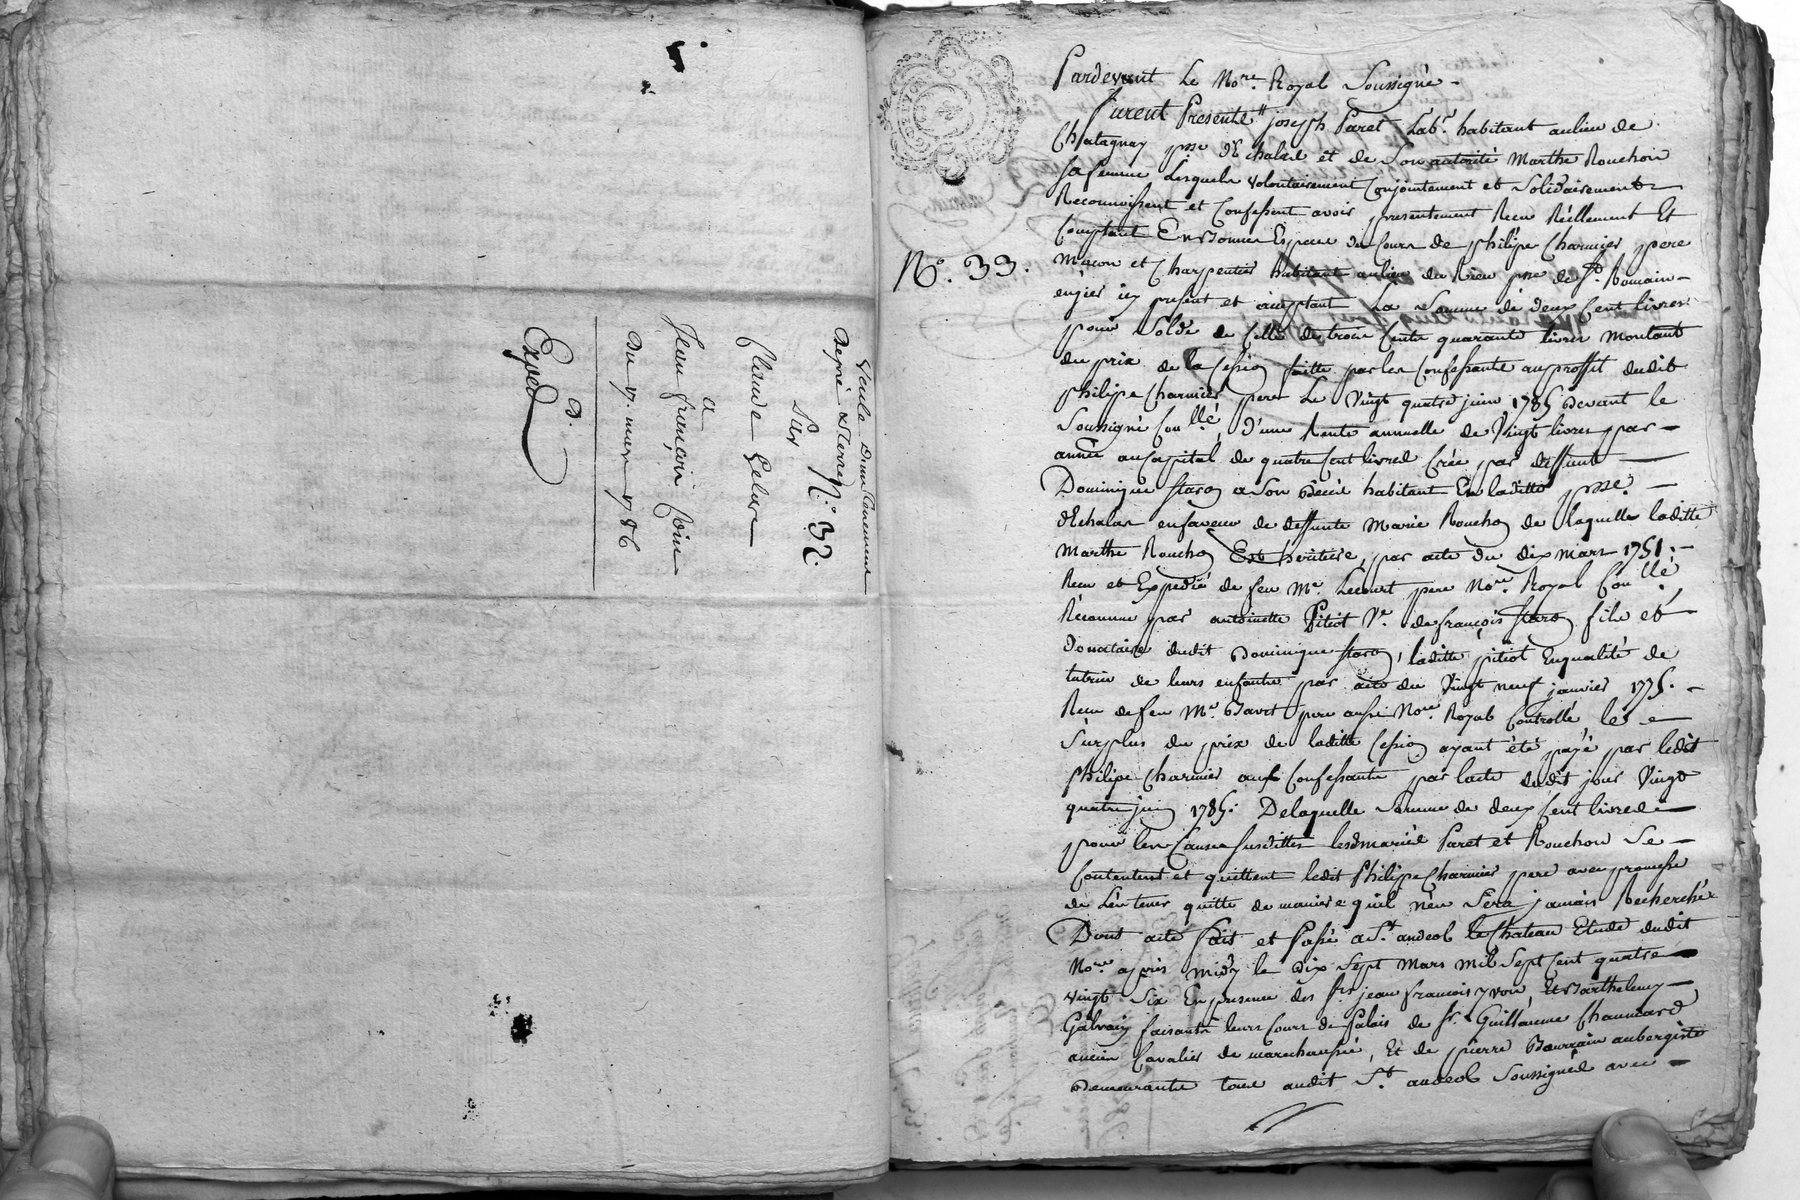 Vente d'un tenement
de pré & terre N.º 32.
Sur
Claude
a
Jean françois
du 17. mars 1786
Exped.
d.
N.º 33.
Pardevant Le No.re Royal Soussigné
furent Presents joseph Paret Lab.r habitant au lieu de
Chatagnay psse d'Echalas et de Son autorité Marthe Rouchon
sa femme Lesquels volontairement Conjointement et Solidairement
Reconnoissent et Confessent avoir presentement Receu Réellement Et
Comptant En Bonnes Especes du Cours de philipe Charmier pere
Maçon et Charpentier habitant au lieu du Rieu psse de St. Romain
en gier icy present et acceptant La Somme de deux Cent livres
pour Solde de Celle de trois Cents quarante livres Montant
du prix de la Cession faitte par les Confessants au proffit dudit
philipe Charmier pere Le Vingt quatre juin 1785 devant le
Soussigné Coullé, d'une Rente annuelle de Vingt livres par
année au Capital de quatre Cent livres Créé par deffunt
Dominique Staron a Son décès habitant En laditte psse.
d'Echalas en faveur de deffunte Marie Rouchon de laquelle laditte
Marthe Rouchon Est heritiere, par acte du dix mars 1751.
Receu et Expedié de feu Me. Lecourt pere No.re Royal Coullé
Réconnue par antoinette Pitiot Ve. de françois Staron fils et
Donataire dudit Dominique Staron, laditte pitiot Enqualité de
tutrice de leurs enfants par acte du Vingt neuf janvier 1775.
Receu de feu Me. pere aussi No.re Royal Controllé, les
Surplus du prix de laditte Cession ayant été payé par ledit
Philipe Charmier aux Confessants par lacte dudit jour Vingt
quatre juin 1785. Delaquelle Somme de deux Cent livres
pour les Causes Susdittes lesd mariés Paret et Rouchon Se
Contentent et quittent ledit Philipe Charmier pere avec promesse
de L'en tenir quitte de maniere qu'il n'en Sera jamais Recherché
Dont acte fait et Passé a St. andeol le Chateau Etude dudit
No.re après midy le dix Sept Mars mil Sept Cent quatre
vingt Six En presence des Srs jean francois yvon, Et Barthelemy
Galvain faisants leurs Cours de Palais de Sr. Guillaume Chaumard
ancien Cavalier de marechaussée, Et de pierre aubergiste
Demeurants tous audit St. andeol Soussignés avec